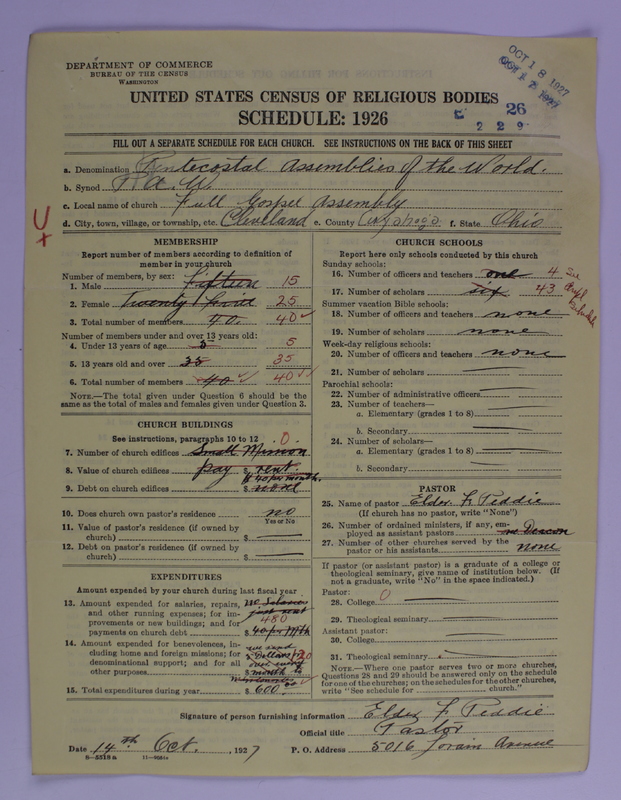 DEPARTMENT OF COMMERCE
BUREAU OF THE CENSUS
WASHINGTON
OCT 18 1927
UNITED STATES CENSUS OF RELIGIOUS BODIES
SCHEDULE: 1926
26
2 2 9
FILL OUT A SEPARATE SCHEDULE FOR EACH CHURCH. SEE INSTRUCTIONS ON THE BACK OF THIS SHEET
a. Denomination Pentecostal Assemblies of the World.
b. Synod P.A.W.
c. Local name of church Full Gospel Assembly
d. City, town, village, or township, etc. Cleveland e. County Cuyahoga f. State Ohio
MEMBERSHIP
Report number of members according to definition of member in your church
Number of members, by sex:
1. Male Fifteen 15
2. Female 25
3. Total number of members 40 40
Number of members under and over 13 years old:
4. Under 13 years of age 5 5
5. 13 years old and over 35 35
6. Total number of members 40 40
NOTE.—The total given under Question 6 should be the
same as the total of males and females given under Question 3.
CHURCH BUILDINGS
See instructions, paragraphs 10 to 12 0
7. Number of church edifices Small Mission
8. Value of church edifices pay $ rent.
$40 per month.
9. Debt on church edifices $ none
10. Does church own pastor's residence no
Yes or No
11. Value of pastor's residence (if owned by
church) $
12. Debt on pastor's residence (if owned by
church) $
EXPENDITURES
Amount expended by church during last fiscal year
13. Amount expended for salaries, repairs, no Salaries
and other running expenses; for im- just rent
provements or new buildings; and for 480
payments on church debt $ 40 per Mth
14. Amount expended for benevolences, in- we send
cluding home and foreign missions; for
denominational support; and for all every
other purposes $ month to
15. Total expenditures during year $ 600.00
CHURCH SCHOOLS
Report here only schools conducted by this church
Sunday schools:
16. Number of officers and teachers one 4 See
17. Number of scholars six 43
Summer vacation Bible schools:
18. Number of officers and teachers none
19. Number of scholars none
Week-day religious schools:
20. Number of officers and teachers none
21. Number of scholars
Parochial schools:
22. Number of administrative officers
23. Number of teachers—
a. Elementary (grades 1 to 8)
b. Secondary
24. Number of scholars—
a. Elementary (grades 1 to 8)
b. Secondary
PASTOR
25. Name of pastor Elder F. Peddie
(If church has no pastor, write "None")
26. Number of ordained ministers, if any, em-
ployed as assistant pastors no Deacon
27. Number of other churches served by the
pastor or his assistants none
If pastor (or assistant pastor) is a graduate of a college or
theological seminary, give name of institution below. (If
not a graduate, write "No" in the space indicated.)
Pastor: 0
28. College
29. Theological seminary
Assistant pastor:
30. College
31. Theological seminary
NOTE.—Where one pastor serves two or more churches,
Questions 28 and 29 should be answered only on the schedule
for one of the churches; on the schedules for the other churches,
write "See schedule for church."
Signature of person furnishing information Elder F. Peddie
Official title Pastor
Date 14th Oct. , 1927 P. O. Address 5016 Lorain Avenue
8—5519a